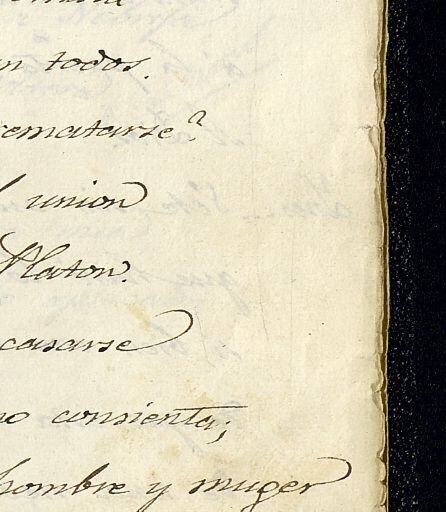 n todos.
rematarse?
union
Platon.
casarse
no consienta;
hombre y muger